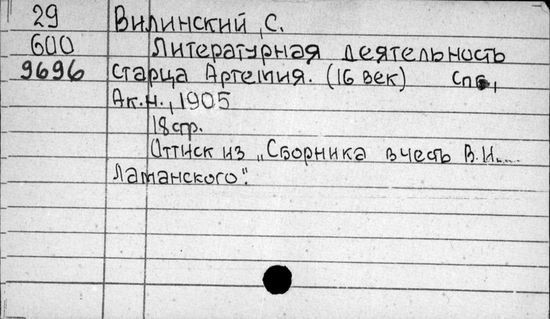 29 Вилинский, С.
600 Литературная деятельность
9696 старца Артемия. (16 век) Спб,
Ак.н., 1905
18 стр.
Оттиск из „Сборника в честь В.И....
Ламанского".